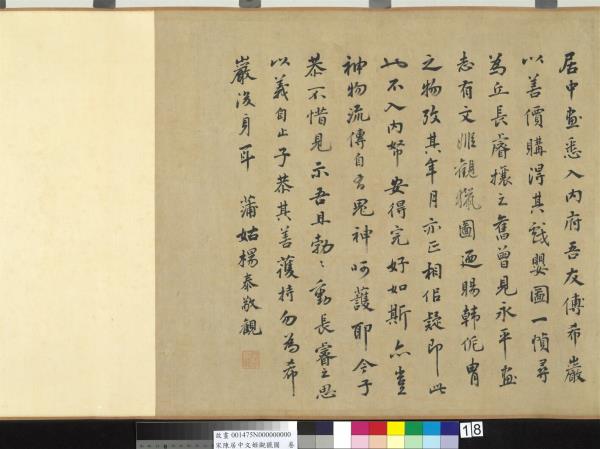 居中畫悉入內府吾友傅希巖
以善價購得其戲嬰圖一幀尋
為丘長睿攘之舊曾見永平畫
志有文姬觀獵圖迺賜韓侂胄
之物攷其年月亦正相侣疑即此
此不入內帑安得完好如斯亦豈
神物流傳自有鬼神呵護耶今子
恭不惜見示吾且勃〻動長睿之思
以義自止子恭其善護持勿為希
巖後身耳 蒲姑楊泰敬觀
故畫 001475N000000000
宋陳居中文姬觀獵圖 卷
18